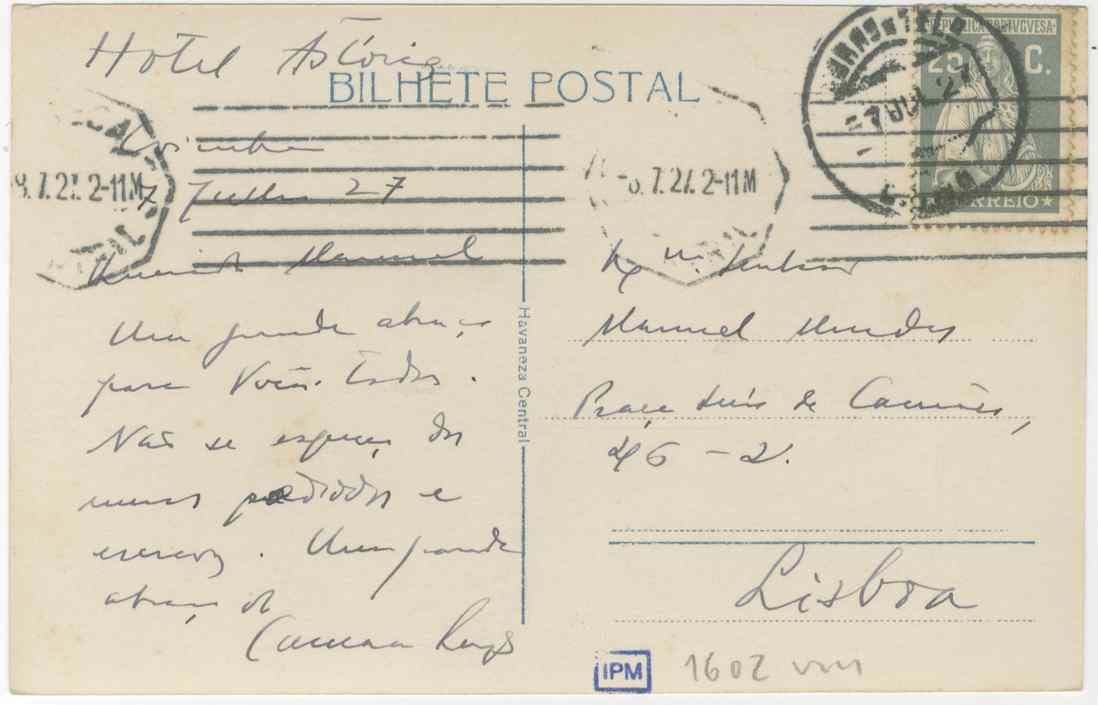 Hotel Astória
BILHETE POSTAL
Coimbra
7 Julho 27
Querido Manuel
Um grande abraço
para Vocês Todos.
Não se esqueça dos
meus pedidos e
escreva. Um grande
abraço do
Camara Reys
Havaneza Central
Exmo Senhor
Manuel Mendes
Praça Luís de Camões,
46-2.
Lisboa
REPUBLICA PORTUGUESA
25 C.
CORREIO
7 JUL 27
8.7.27. 2-11M
8.7.27. 2-11M
IPM
1602